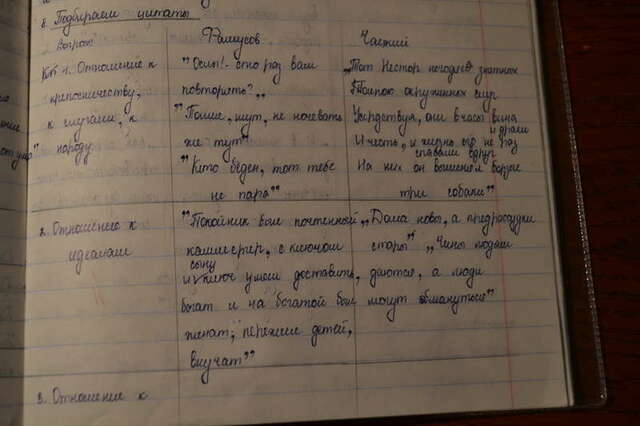 5 Подбираем цитаты
Вопрос Фамусов Чацкий
1. Отношение к "Ослы! сто раз вам „Тот Нестор негодяев знатных
крепосничеству, повторять?„ Толпою окруженных слуг
к слугам, к "Пошел, шут, не ночевать Усердствуя, они в часы вина
и драки
народу. же тут" И честь, и жизнь его не раз
спасали вдруг
"Кто беден, тот тебе На них он выменял борзые
не пара" три собаки"
2. Отношение к "Покойник был почтенный „Дома новы, а предрассудки
идеалам камергер, с ключом стары" „Чины людьми
сыну
и ключ умел доставить, даются, а люди
богат и на богатой был могут обмануться"
женат; пережил детей,
внучат"
3. Отношение к